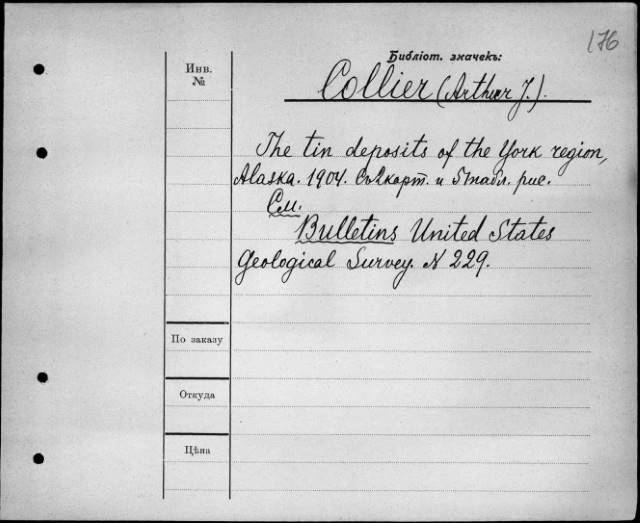 176
Библіот. значекъ:
Инв.
№
Collier (Arthur J.).
The tin deposits of the York region,
Alaska. 1904. Съ 2 карт. и 5 табл. рис.
См.
Bulletins United States
Geological Survey. N 229.
По заказу
Откуда
Цѣна